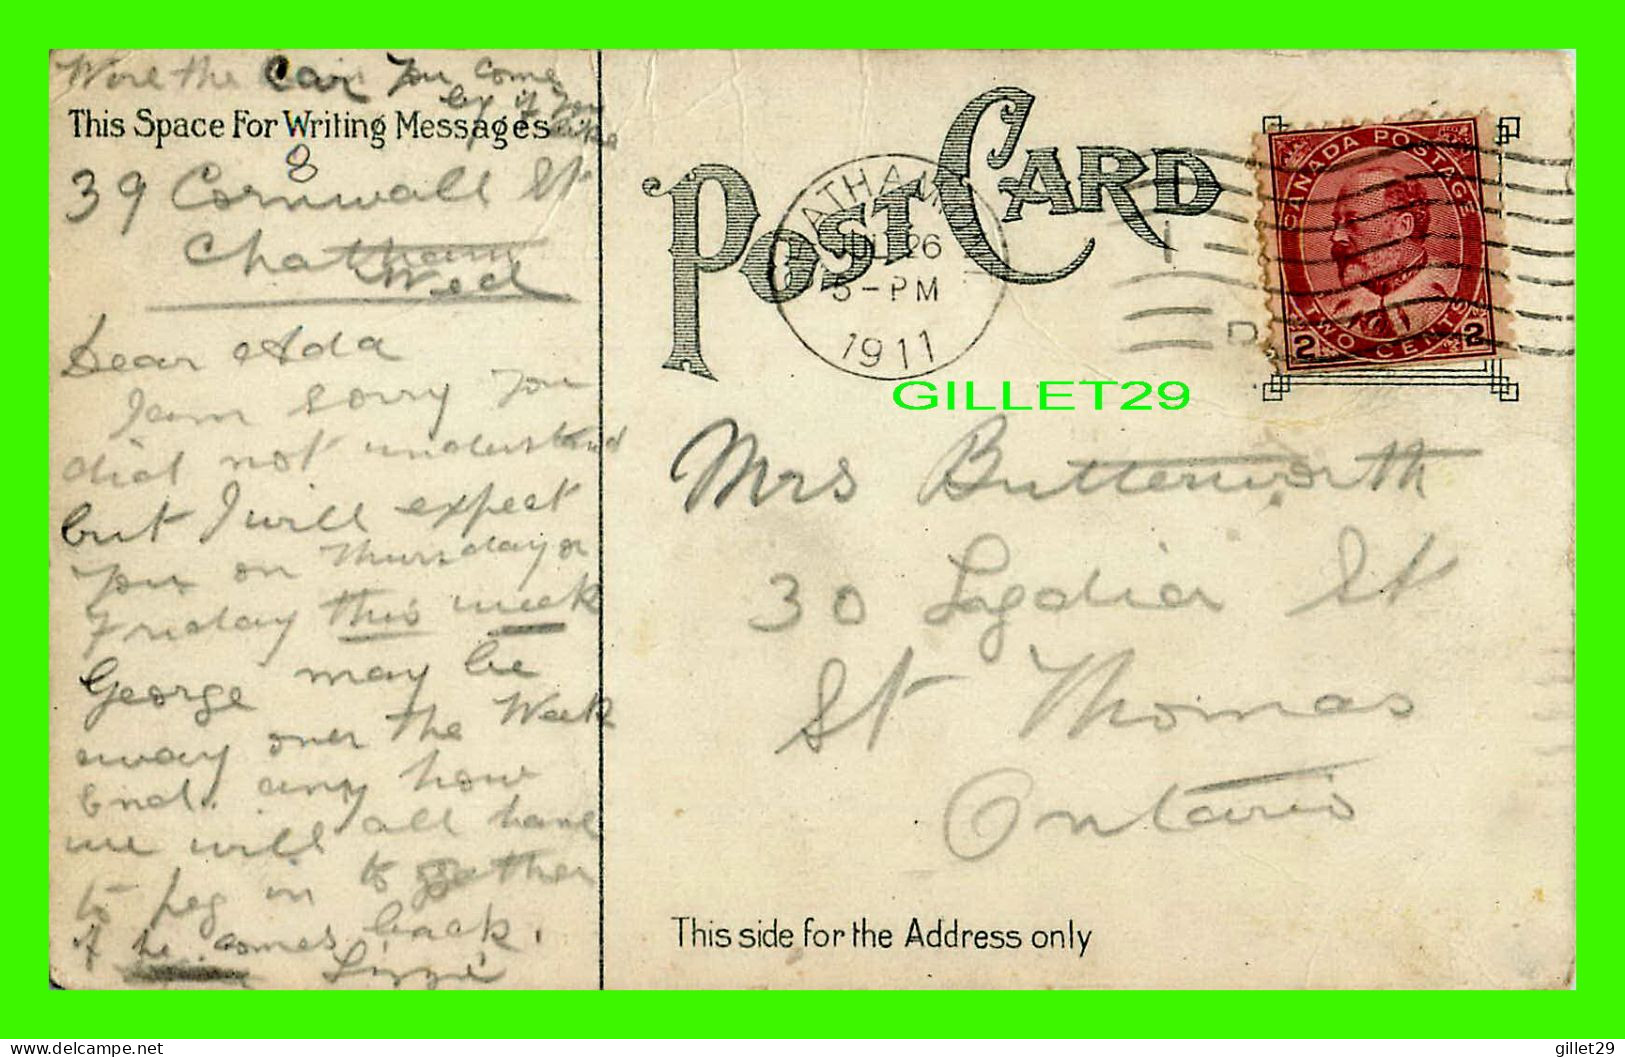 Wire the Car you come
by if you
like
This Space For Writing Messages
8
39 Cornwall St
Chatham
Wed
Dear Ada
I am sorry you
did not understand
but I will expect
you on Thursday or
Friday this week
George may be
away over the Week
End. any how
we will all have
to peg in to gather
if he comes back.
Lizzie
POST CARD
CHATHAM
JUL 26
5-PM
1911
CANADA POSTAGE
2 TWO CENTS 2
GILLET29
Mrs Butterworth
30 Lydia St
St Thomas
Ontario
This side for the Address only
delcampe.net
gillet29